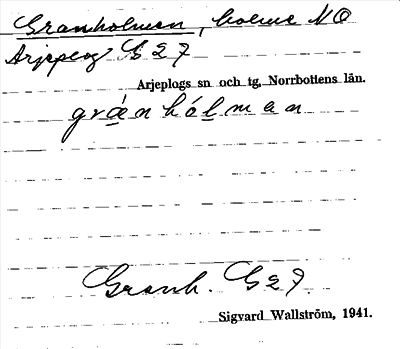 Granholmen, holme NO
Arjeplog G 27
Arjeplogs sn och tg, Norrbottens län.
grànhólman
Granh. G 27.
Sigvard Wallström, 1941.